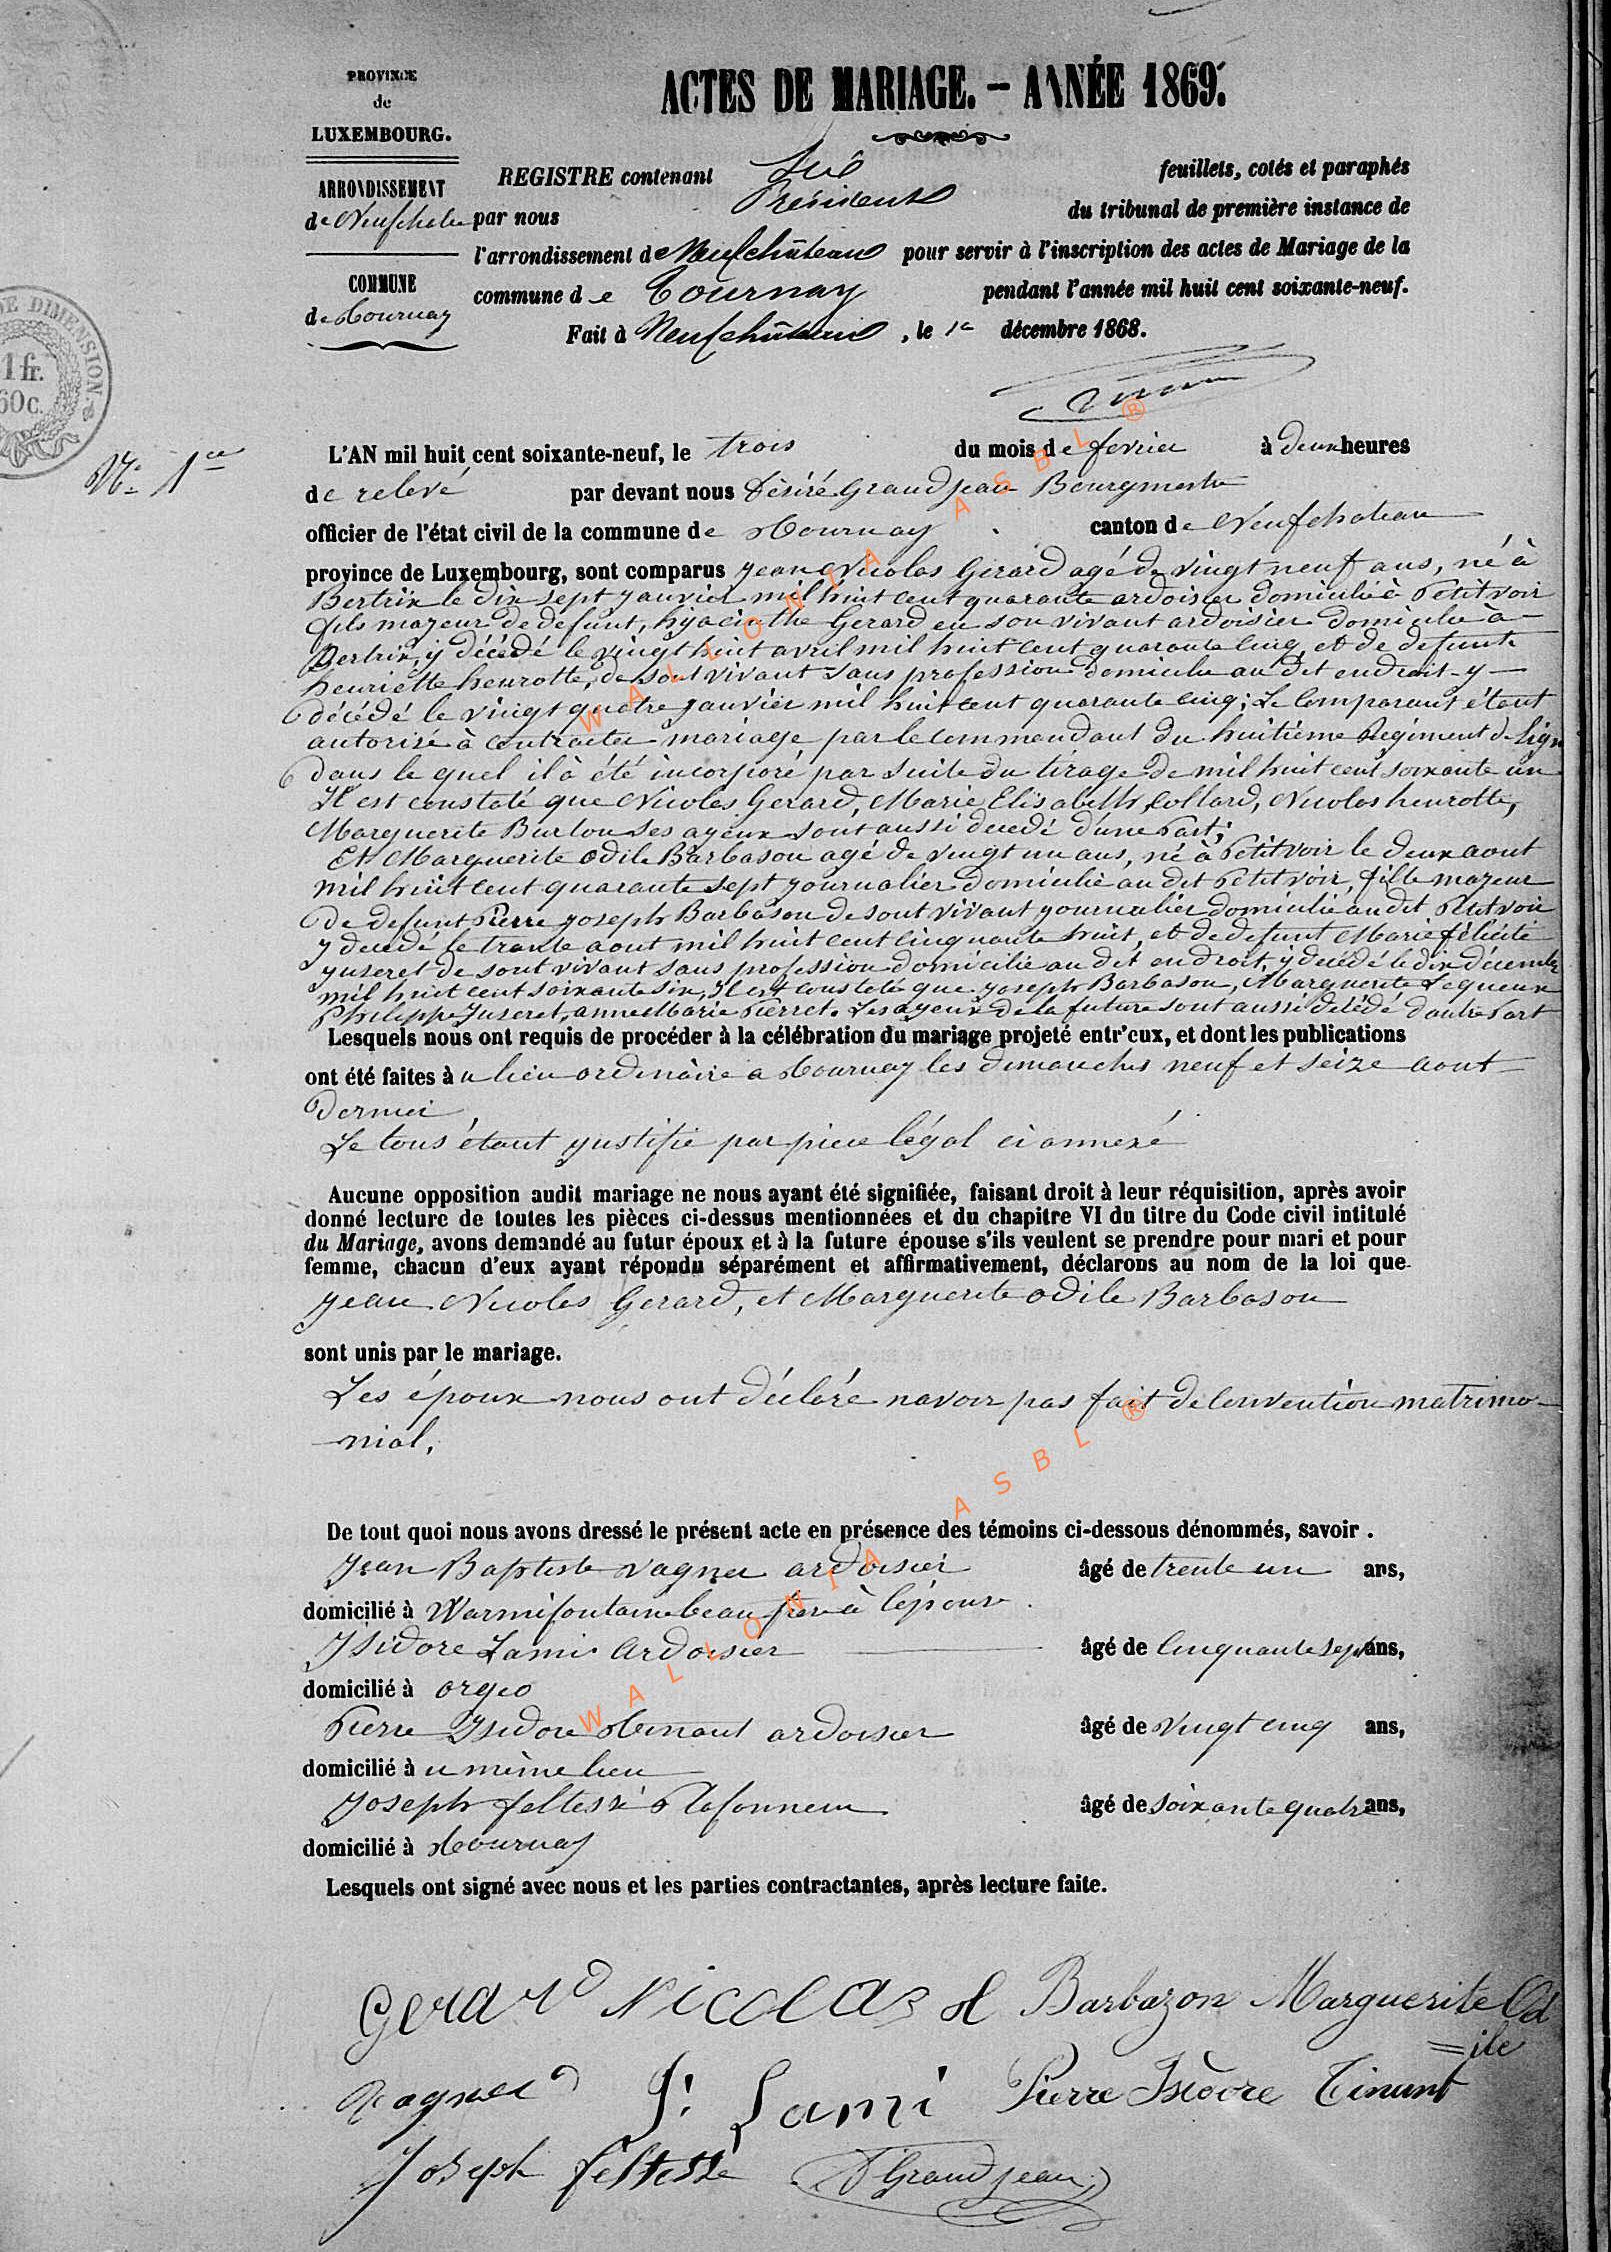 PROVINCE
de
LUXEMBOURG.
ARRONDISSEMENT
de Neufchateau
COMMUNE
de Tournay
DE DIMENSION
1 fr.
60c.
ACTES DE MARIAGE. – ANNÉE 1869.
REGISTRE contenant Six feuillets, cotés et paraphés
par nous Président du tribunal de première instance de
l'arrondissement de Neufchâteau pour servir à l'inscription des actes de Mariage de la
commune de Tournay pendant l'année mil huit cent soixante-neuf.
Fait à Neufchâteau, le 1er décembre 1868.
N° 1er
L'AN mil huit cent soixante-neuf, le trois du mois de fevrier à deux heures
de relevé par devant nous Désiré Grandjean Bourgmestre
officier de l'état civil de la commune de Tournay canton de Neufchateau
province de Luxembourg, sont comparus Jean Nicolas Gerard agé de vingt neuf ans, né à
Bertrix le dix sept Janvier mil huit cent quarante ardoisier domicilié à Petitvoir
fils majeur de defunt, hyacinthe Gerard en son vivant ardoisier domicilié à
Bertrix, y décédé le vingt huit avril mil huit cent quarante cinq, et de defunte
henriette henrotte, de sont vivant sans profession domicilié au dit endroit y
décédé le vingt quatre Janvier mil huit cent quarante cinq; Le Comparant étant
autorisé à contracter mariage, par le commendant du huitième Régiment de Ligne
dans le quel il à été incorporé par suite du tirage de mil huit cent soixante un
Il est constaté que Nicolas Gerard, Marie Elisabeth Collard, Nicolas henrotte,
Marguerite Burton ses ayeux sont aussi decedé d'une Part;
Et Marguerite Odile Barbason agé de vingt un ans, né à Petitvoir le deux aout
mil huit cent quarante sept Journalier domicilié au dit Petitvoir, fille majeur
de defunt Pierre Joseph Barbason de sont vivant Journalier domicilié au dit Petitvoir
y decedé le trente aout mil huit cent cinquante huit, et de defunt Marie félicité
Juseret de sont vivant sans profession domicilié au dit endroit y décédé le dix décembre
mil huit cent soixante six, Il est constaté que Joseph Barbason, Marguerite Lequeux
Philippe Juseret, anne Marie Pierret. Les ayeux de la future sont aussi décédé d'autre Part
Lesquels nous ont requis de procéder à la célébration du mariage projeté entr'eux, et dont les publications
ont été faites à u lieu ordinaire a Tournay les dimanches neuf et seize aout
dernier
Le tous étant Justifié par piece légal ci annexé
Aucune opposition audit mariage ne nous ayant été signifiée, faisant droit à leur réquisition, après avoir
donné lecture de toutes les pièces ci-dessus mentionnées et du chapitre VI du titre du Code civil intitulé
du Mariage, avons demandé au futur époux et à la future épouse s'ils veulent se prendre pour mari et pour
femme, chacun d'eux ayant répondu séparément et affirmativement, déclarons au nom de la loi que
Jean Nicolas Gerard, et Marguerite Odile Barbason
sont unis par le mariage.
Les époux nous ont décláré navoir pas fait de Convention matrimo-
nial,
De tout quoi nous avons dressé le présent acte en présence des témoins ci-dessous dénommés, savoir.
Jean Baptiste Vagner ardoisier âgé de trente un ans,
domicilié à Warmifontaine beau frere à l'épouse
Isidore Lami ardoisier âgé de Cinquante sept ans,
domicilié à orgeo
Pierre Isidore Tinant ardoisier âgé de vingt cinq ans,
domicilié à u même lieu
Joseph feltesse Plafonneur âgé de soixante quatre ans,
domicilié à Tournay
Lesquels ont signé avec nous et les parties contractantes, après lecture faite.
Gerard Nicolas Barbazon Marguerite Od
=ile
Vagner J: Lami Pierre Isidore Tinant
Joseph feltesse D Grandjean
WALLONIA ASBL ®
WALLONIA ASBL ®